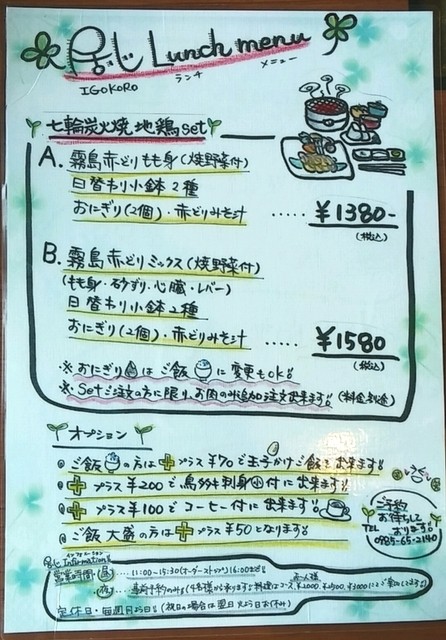 Lunch menu
IGOKORO
ランチ
メニュー
七輪炭火焼 地鶏 set
A. 霧島赤どりもも身(焼野菜付)
日替わり小鉢2種
おにぎり(2個)・赤どりみそ汁 ..... ¥1380-
(税込)
B. 霧島赤どりミックス(焼野菜付)
(もも身・砂ずり・心臓・レバー)
日替わり小鉢2種
おにぎり(2個)・赤どりみそ汁 ..... ¥1580
(税込)
※おにぎりはご飯に変更もOK!!
※Setご注文の方に限り、お肉のみ追加注文出来ます!!(料金別途)
オプション
ご飯の方は+プラス¥70で玉子かけご飯も出来ます!!
+プラス¥200で鳥刺身小付に出来ます!!
+プラス¥100でコーヒー付に出来ます!!
ご飯大盛の方は+プラス¥50となります!!
ご予約
お待ちして
おります!!
TEL
0985-65-2140
Information!!
営業時間 昼 11:00~15:30(オーダーストップ)16:00まで
夜
定休日・毎週月曜日(祝日の場合は翌日火曜日お休み)